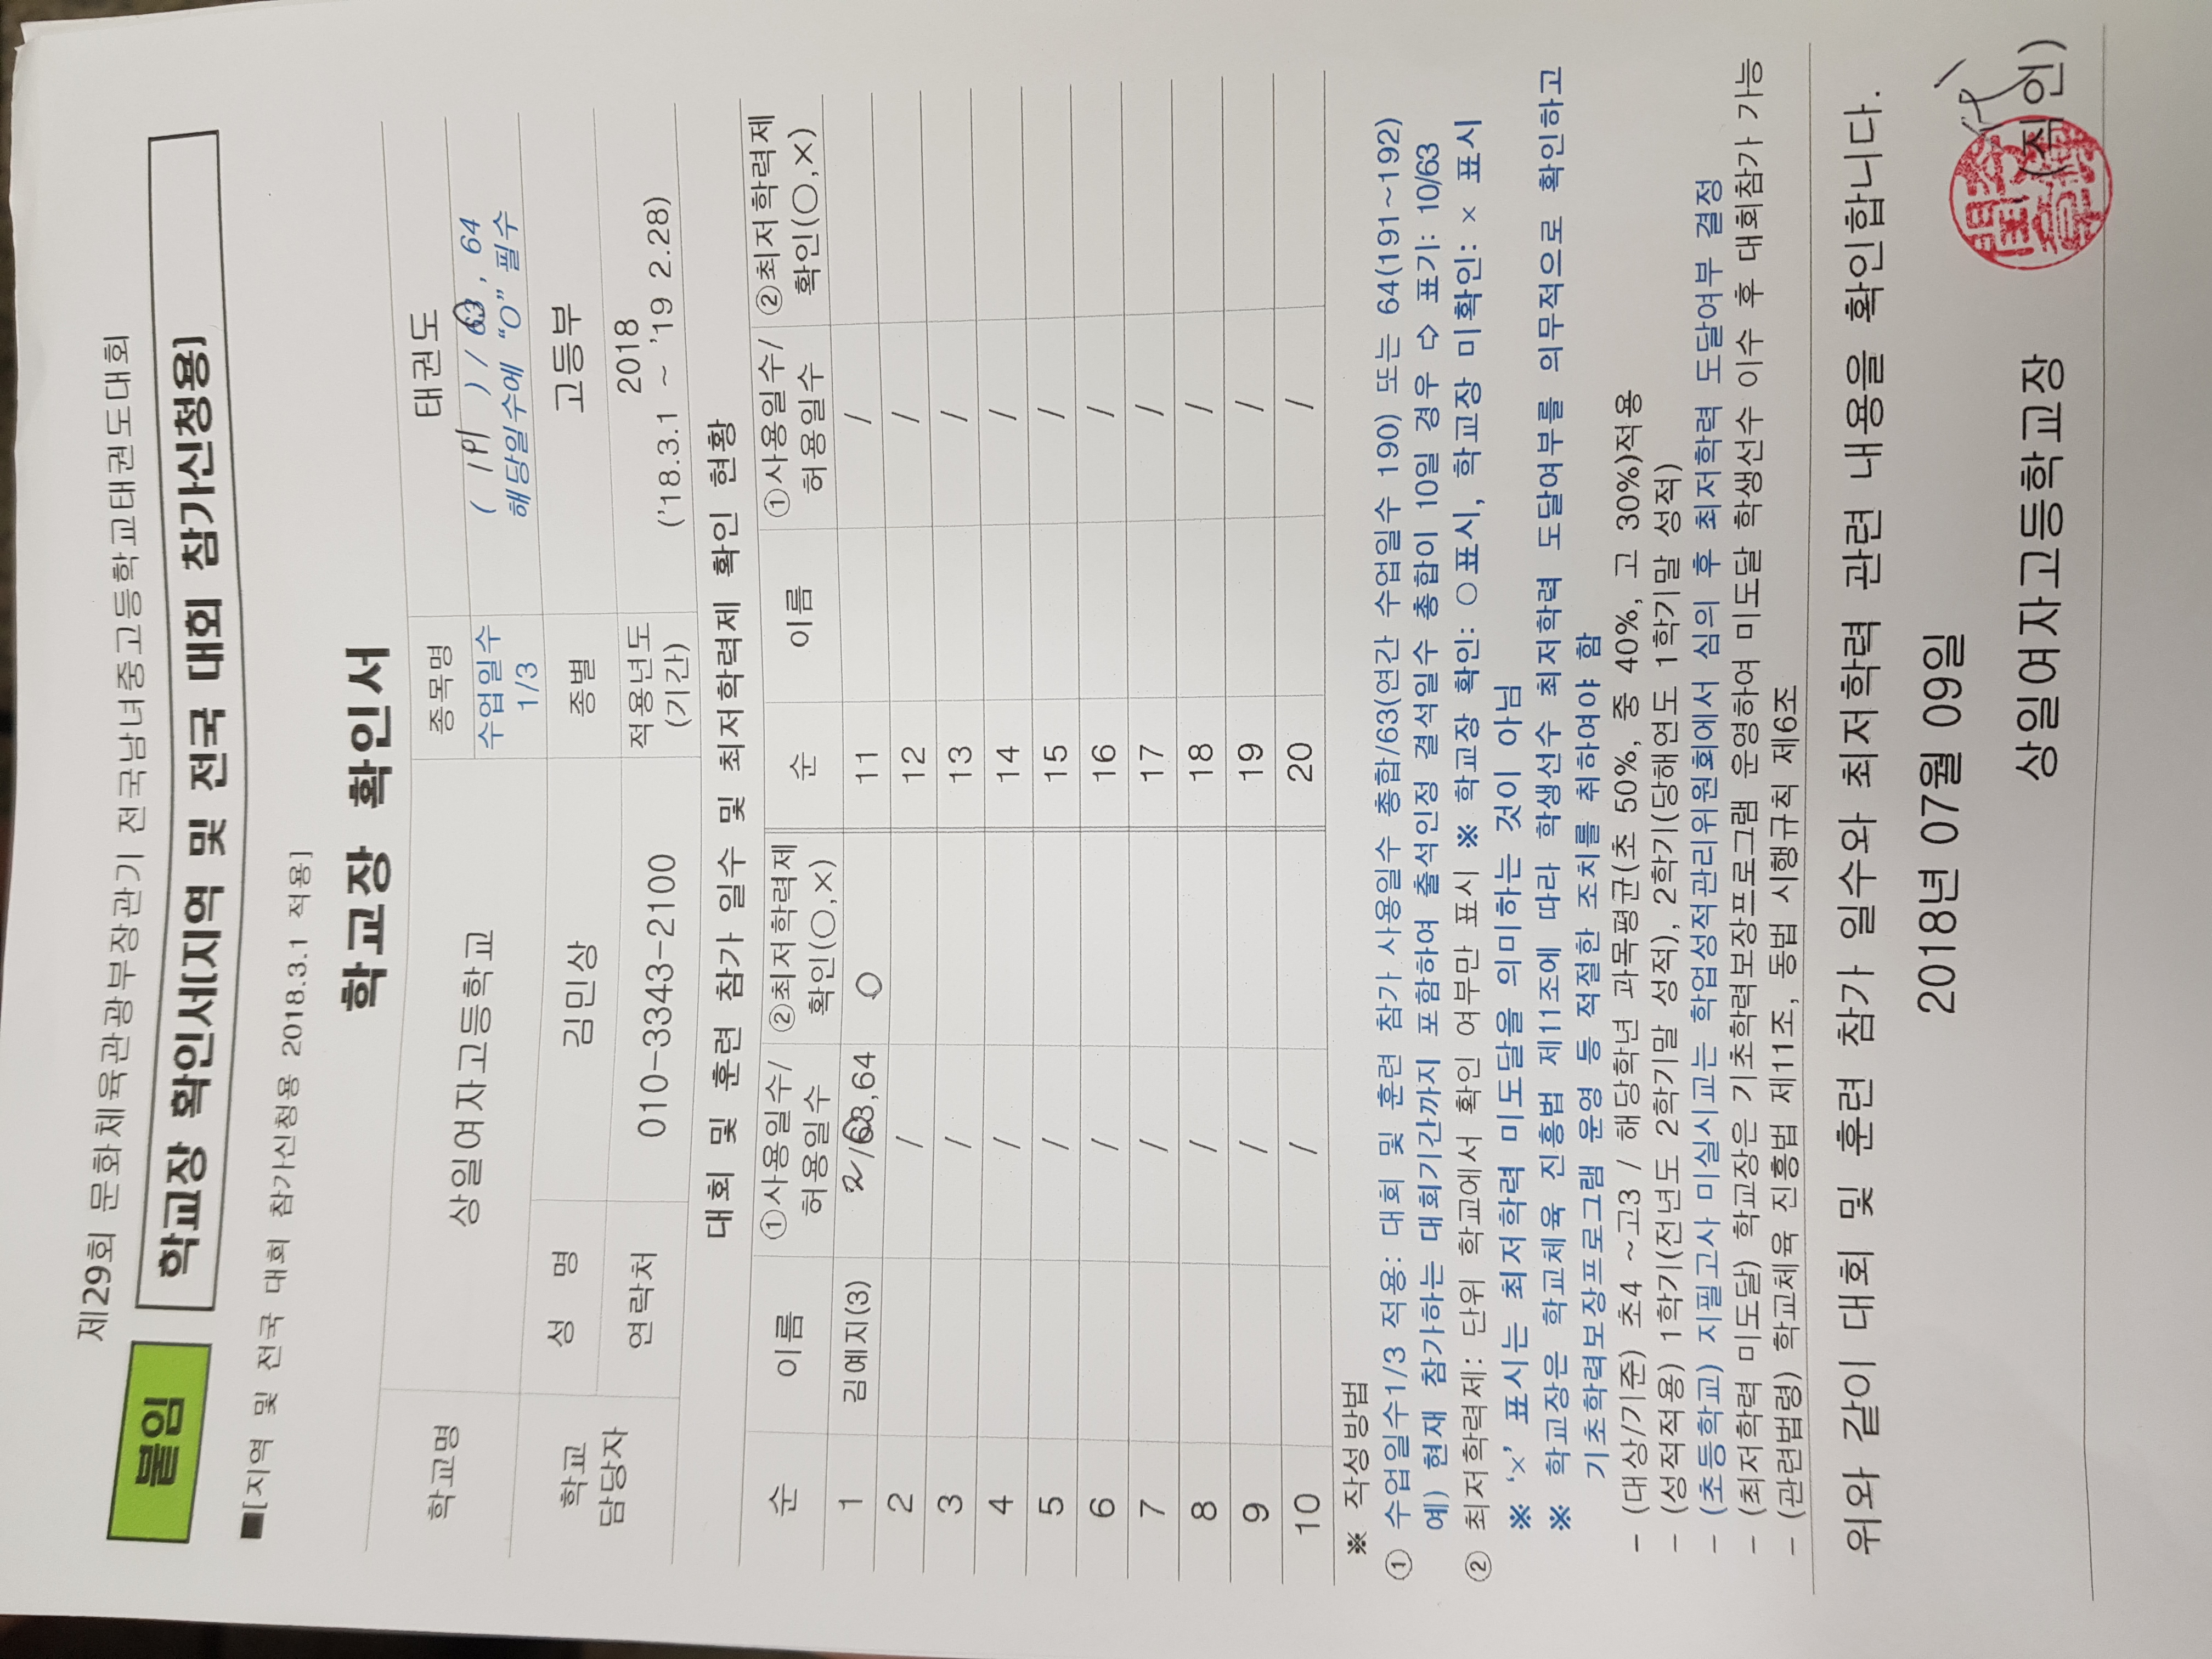 제29회 문화체육관광부장관기 전국남녀중고등학교태권도대회
붙임
학교장 확인서[지역 및 전국 대회 참가신청용]
■[지역 및 전국 대회 참가신청용 2018.3.1 적용]
학교장 확인서
학교명 상일여자고등학교 종목명 태권도
수업일수 1/3 ( ) / 63, 64
해당일수에 "O" 필수
학교 담당자 성 명 김민상 종별 고등부
연락처 010-3343-2100 적용년도 (기간) 2018
('18.3.1 ~ '19 2.28)
대회 및 훈련 참가 일수 및 최저학력제 확인 현황
순 이름 ①사용일수/허용일수 ②최저학력제 확인(○,×) 순 이름 ①사용일수/허용일수 ②최저학력제 확인(○,×)
1 김예지(3) 2/63,64 ○ 11 /
2 / 12 /
3 / 13 /
4 / 14 /
5 / 15 /
6 / 16 /
7 / 17 /
8 / 18 /
9 / 19 /
10 / 20 /
※ 작성방법
① 수업일수1/3 적용: 대회 및 훈련 참가 사용일수 총합/63(연간 수업일수 190) 또는 64(191~192)
예) 현재 참가하는 대회기간까지 포함하여 출석인정 결석일수 총합이 10일 경우 ⇨ 표기: 10/63
② 최저학력제: 단위 학교에서 확인 여부만 표시 ※ 학교장 확인: ○표시, 학교장 미확인: × 표시
※ '×' 표시는 최저학력 미도달을 의미하는 것이 아님
※ 학교장은 학교체육 진흥법 제11조에 따라 학생선수 최저학력 도달여부를 의무적으로 확인하고
기초학력보장프로그램 운영 등 적절한 조치를 취하여야 함
- (대상/기준) 초4 ~고3 / 해당학년 과목평균(초 50%, 중 40%, 고 30%)적용
- (성적적용) 1학기(전년도 2학기말 성적), 2학기(당해연도 1학기말 성적)
- (초등학교) 지필고사 미실시교는 학업성적관리위원회에서 심의 후 최저학력 도달여부 결정
- (최저학력 미도달) 학교장은 기초학력보장프로그램 운영하여 미도달 학생선수 이수 후 대회참가 가능
- (관련법령) 학교체육 진흥법 제11조, 동법 시행규칙 제6조
위와 같이 대회 및 훈련 참가 일수와 최저학력 관련 내용을 확인합니다.
2018년 07월 09일
상일여자고등학교장 (직인)